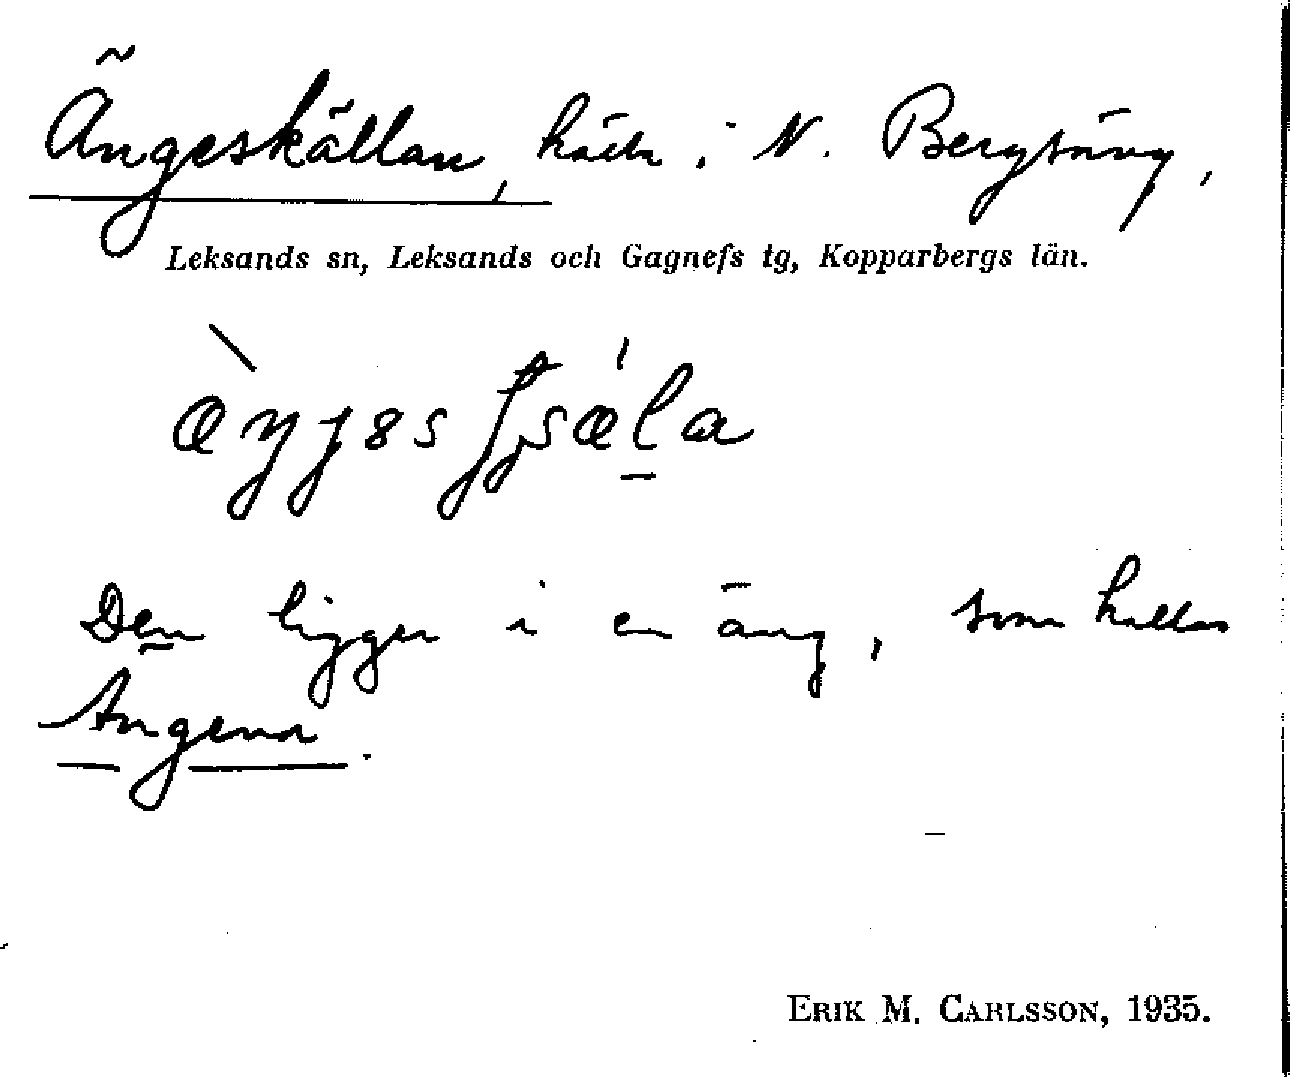 Ängeskällan, källa i N. Bergsäng,
Leksands sn, Leksands och Gagnefs tg, Kopparbergs län.
Den ligger i en äng, som kallas
Ängena.
ERIK M. CARLSSON, 1935.